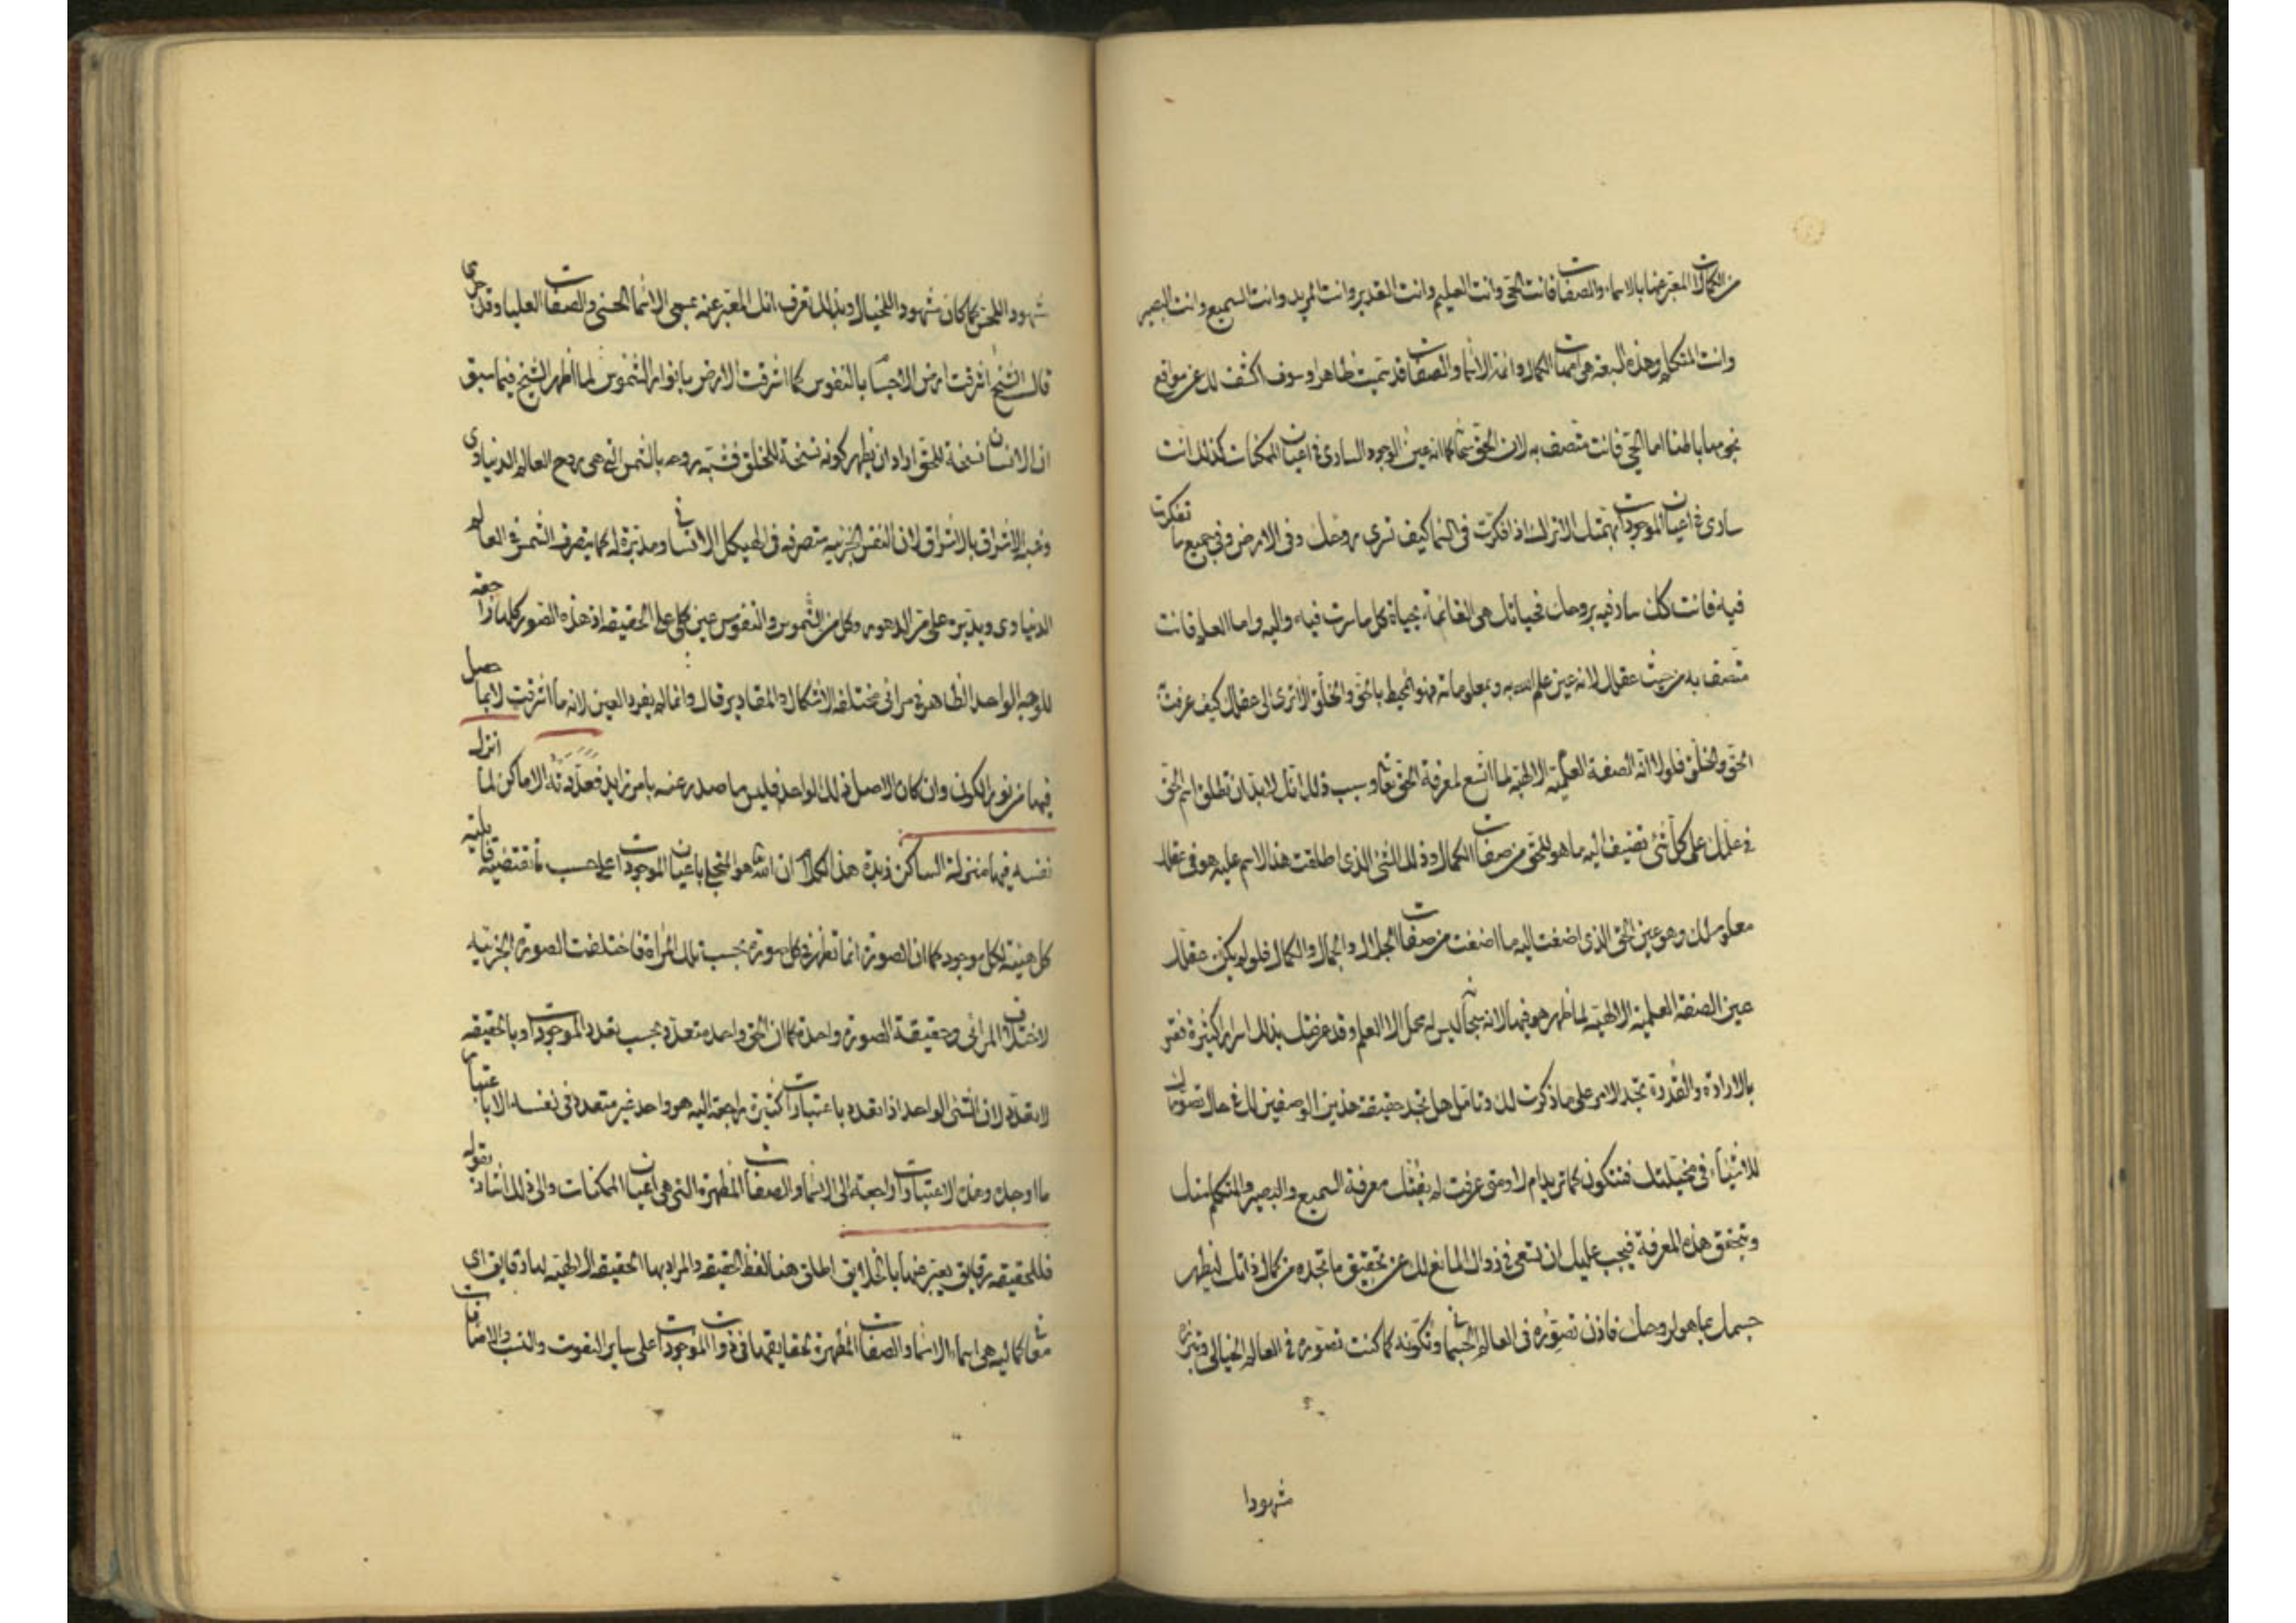 من الكمالات المعبر عنها بالاسماء والصفات فانت الحي وانت العليم وانت القدير وانت المريد وانت السميع وانت البصير
وانت المتكلم وهذه السبعة هي امهات الكمال وائمة الاسماء والصفات قد تميت ظاهرا وسوف اكشف لك عن مواقع
نجومها باطنا اما الحي فانت متصف به لان الحق سبحانه كما انه عين الوجود الساري في اعيان الممكنات كذلك انت
ساري في اعيان الموجودات بهمتك الا تراك اذا فكرت في السماء كيف تسري بروحك وفي الارض وفي جميع ما تفكرت
فيه فانت كلك سار فيه بروحك فحياتك هي القائمة بحياة كل ما سرت فيه واليه واما العلم فانت
متصف به من حيث عقلك لانه عين علم الله به وبمعلوماته فهو المحيط بالحق والخلق الا ترى الى عقلك كيف عرفت
الحق والخلق فلولا انه الصفة العلمية الالهية لما اتسع لمعرفة الحق تعالى وسبب ذلك انك لا بد ان تطلق اسم الحق
في علمك على كل شئ تضيف اليه ما هو للحق من صفات الكمال وذلك الشئ الذي اطلقت هذا الاسم عليه هو في عقلك
معلوم لك وهو عين الحق الذي اضفت اليه ما اضفت من صفات الجلال والجمال والكمال فلو لم يكن عقلك
عين الصفة العلمية الالهية لما ظهر هو فيها لانه سبحانه ليس له محل الا العلم وقد عرفتك بذلك اسرار كثيرة فقر
بالارادة والقدرة تجد الامر على ما ذكرت لك وتامل هل تجد حقيقة هذين الوصفين لك في حال تصورك
للاشياء في مخيلتك فتتكون كما تريد ام لا ومتى عرفت لم يفتك معرفة السميع والبصير والمتكلم منك
وبتحقق هذه المعرفة فيجب عليك ان تسعى في زوال المانع لك عن تحقيق ما تجده من كمال ذاتك ليظهر
جسمك بما هو لروحك فاذن تصوره في العالم الجسماني وتكونه كما كنت تصوره في العالم الخيالي وتبرزه
شهودا
شهودا للحس كما كان شهودا للخيال وبذلك تعرف انك المعبر عنه بمسمى الاسماء الحسنى والصفات العليا وقد جرى
قال الشيخ اشرقت ارض الاجسام بالنفوس كما اشرقت الارض بانوار الشموس لما اظهر الشيخ فيما سبق
ان الانسان نسخة للحق اراد ان يظهر كونه نسخة للخلق فشبه روحه بالشمس التي هي روح العالم الدنياوي
وعبر الاشراق بالاشراق لان النفس الجزئية متصرفة في الهيكل الانساني ومدبرة له كما يتصرف الشمس في العالم
الدنياوي ويدبره على مر الدهور وكل من الشموس والنفوس عين كلي على الحقيقة اذ هذه الصور كلها راجعة
للوجه الواحد الظاهر في مرائي مختلفة الاشكال والمقادير قال وانما لم يفرد العين لانه ما اشرقت لانها حصل
فيها من نور الكون وان كان الاصل ذلك الواحد فليس ما صدر عنه بامر زايد فعددته الاماكن لما انزل
نفسه فيها منزلة الساكن زبدة هذا الكلام ان الله هو المتجلي باعيان الموجودات على حسب ما تقتضيه قابلية
كل هيئة لكل موجود كما ان الصورة انما تظهر في كل صورة بحسب تلك المرآة فاختلفت الصورة الجزئية
لاختلاف المرائي وحقيقة الصورة واحدة كما ان الحق واحد متعدد بحسب تعدد الموجودات وبالحقيقة
لا تعدد لان الشئ الواحد اذا تعدد باعتبارات كثيرة راجعة اليه هو واحد غير متعدد في نفسه الا باعتبار
ما اوجد وهذه الاعتبارات راجعة الى الاسماء والصفات المظهرة التي هي اعيان الممكنات والى ذلك اشار بقوله
فللحقيقة رقايق يعبر عنها بالخلايق اطلق هنا لفظ الحقيقة والمراد بها الحقيقة الالهية لها دقايق اي
معاني كمالية هي اسماء الاسماء والصفات المظهرة بحقايقها في ذوات الموجودات على ساير النعوت والنسب والاضافات